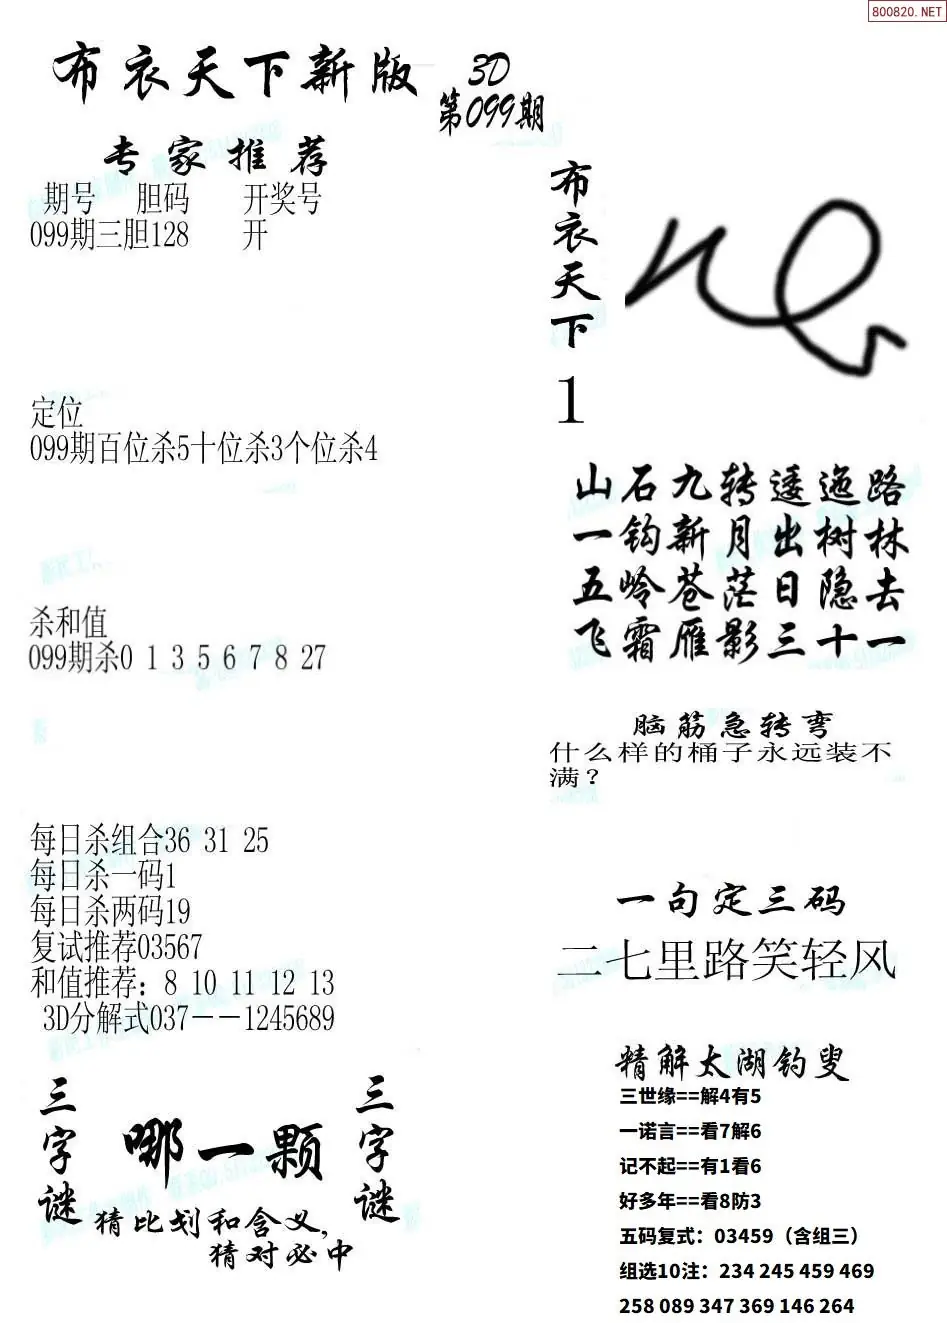 800820.NET
布衣天下新版
3D
第099期
专家推荐
期号 胆码 开奖号
099期三胆128 开
定位
099期百位杀5十位杀3个位杀4
杀和值
099期杀0 1 3 5 6 7 8 27
每日杀组合36 31 25
每日杀一码1
每日杀两码19
复试推荐03567
和值推荐：8 10 11 12 13
3D分解式037－－1245689
三字谜
哪一颗
三字谜
猜比划和含义，
猜对必中
布衣天下
1
山石九转逶迤路
一钩新月出树林
五岭苍茫日隐去
飞霜雁影三十一
脑筋急转弯
什么样的桶子永远装不
满？
一句定三码
二七里路笑轻风
精解太湖钓叟
三世缘==解4有5
一诺言==看7解6
记不起==有1看6
好多年==看8防3
五码复式：03459（含组三）
组选10注：234 245 459 469
258 089 347 369 146 264